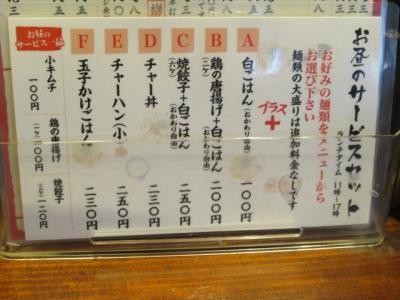 お昼のサービスセット
ランチタイム 11時〜17時
お好みの麺類をメニューから
お選び下さい
麺類の大盛りは追加料金なしです
プラス
+
A
白ごはん(おかわり自由)
一〇〇円
B
鶏の唐揚げ+白ごはん
(二ケ)
(おかわり自由)
二〇〇円
C
焼餃子+白ごはん
(六ケ)
(おかわり自由)
二五〇円
D
チャー丼
二五〇円
E
チャーハン(小)
二五〇円
F
玉子かけごはん
二三〇円
お昼の
サービス一品
小キムチ
一〇〇円
鶏の唐揚げ
(二ケ)
一〇〇円
焼餃子
一二〇円